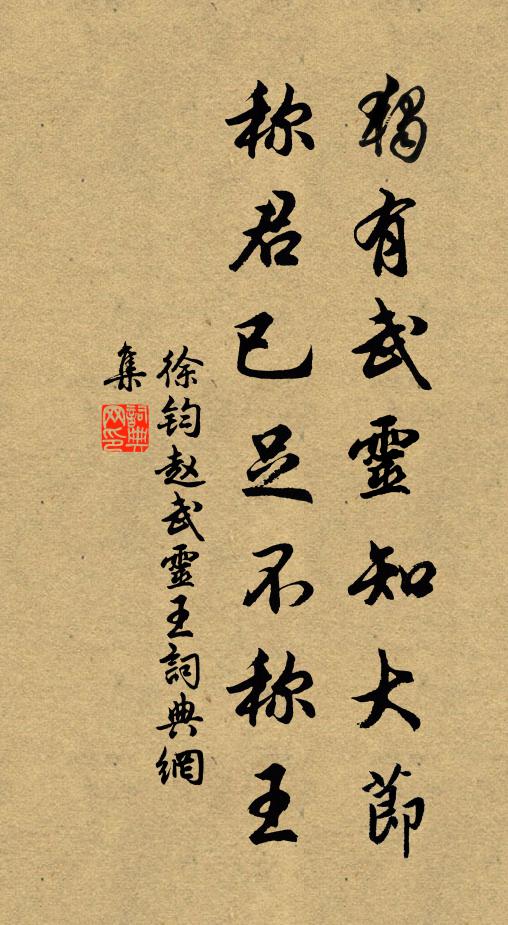 獨有武靈知大節
称君已足不称王
徐鈞赵武靈王詞典網
集
詞典
网印